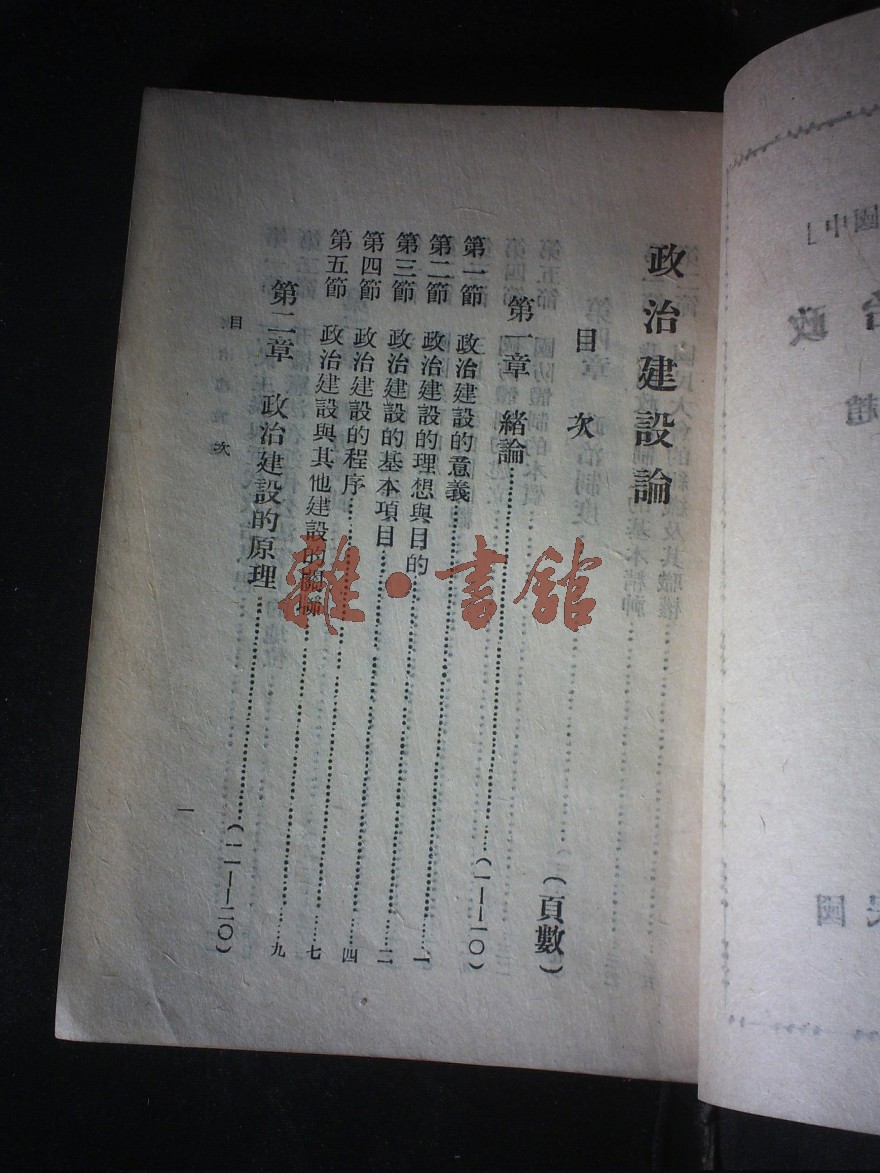 政治建設論
目次……（頁數）
第一章 緒論……（一——一〇）
第一節 政治建設的意義……一
第二節 政治建設的理想與目的……二
第三節 政治建設的基本項目……四
第四節 政治建設的程序……七
第五節 政治建設與其他建設的關聯……九
第二章 政治建設的原理……（一一——二〇）
目次
一
雜·書館